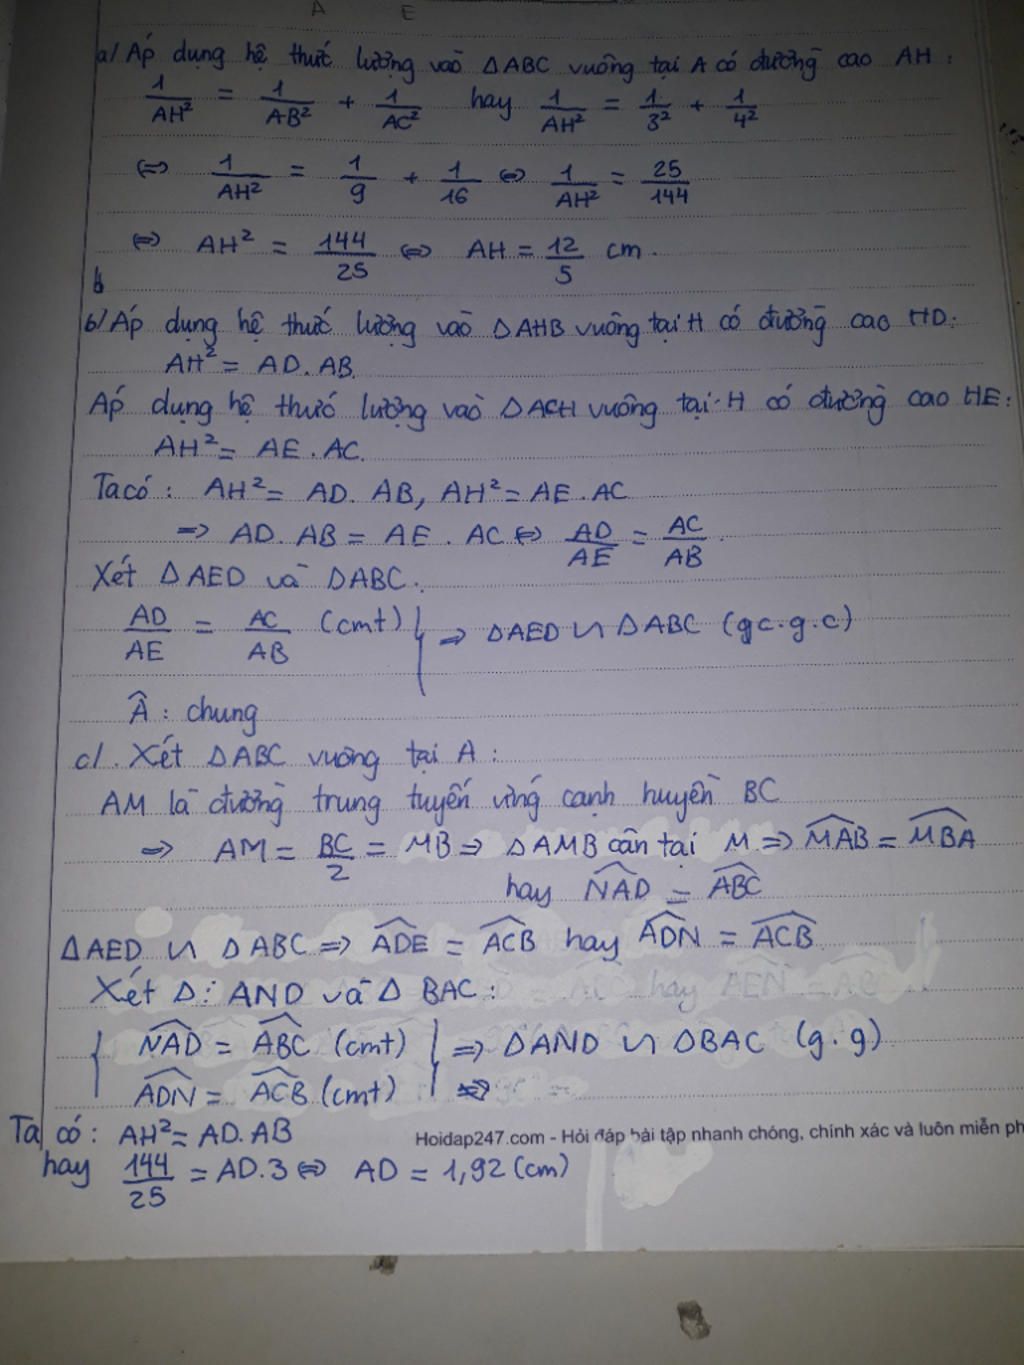 A E
a/ Áp dụng hệ thức lượng vào ΔABC vuông tại A có đường cao AH:
1/AH² = 1/AB² + 1/AC² hay 1/AH² = 1/3² + 1/4²
⇔ 1/AH² = 1/9 + 1/16 ⇔ 1/AH² = 25/144
⇔ AH² = 144/25 ⇔ AH = 12/5 cm.
b
b/ Áp dụng hệ thức lượng vào ΔAHB vuông tại H có đường cao HD:
AH² = AD.AB.
Áp dụng hệ thức lượng vào ΔACH vuông tại H có đường cao HE:
AH² = AE.AC.
Ta có: AH² = AD.AB, AH² = AE.AC
⇒ AD.AB = AE.AC ⇔ AD/AE = AC/AB.
Xét ΔAED và ΔABC.
AD/AE = AC/AB (cmt) } ⇒ ΔAED ∽ ΔABC (gc.g.c)
Â: chung
c/. Xét ΔABC vuông tại A:
AM là đường trung tuyến ứng cạnh huyền BC
⇒ AM = BC/2 = MB ⇒ ΔAMB cân tại M ⇒ ∠MAB = ∠MBA
hay ∠NAD = ∠ABC
ΔAED ∽ ΔABC ⇒ ∠ADE = ∠ACB hay ∠ADN = ∠ACB
Xét Δ: AND và Δ BAC:
{ ∠NAD = ∠ABC (cmt) } ⇒ ΔAND ∽ ΔBAC (g.g)
∠ADN = ∠ACB (cmt) ⇒
Ta có: AH² = AD.AB
hay 144/25 = AD.3 ⇔ AD = 1,92 (cm)
Hoidap247.com - Hỏi đáp bài tập nhanh chóng, chính xác và luôn miễn ph